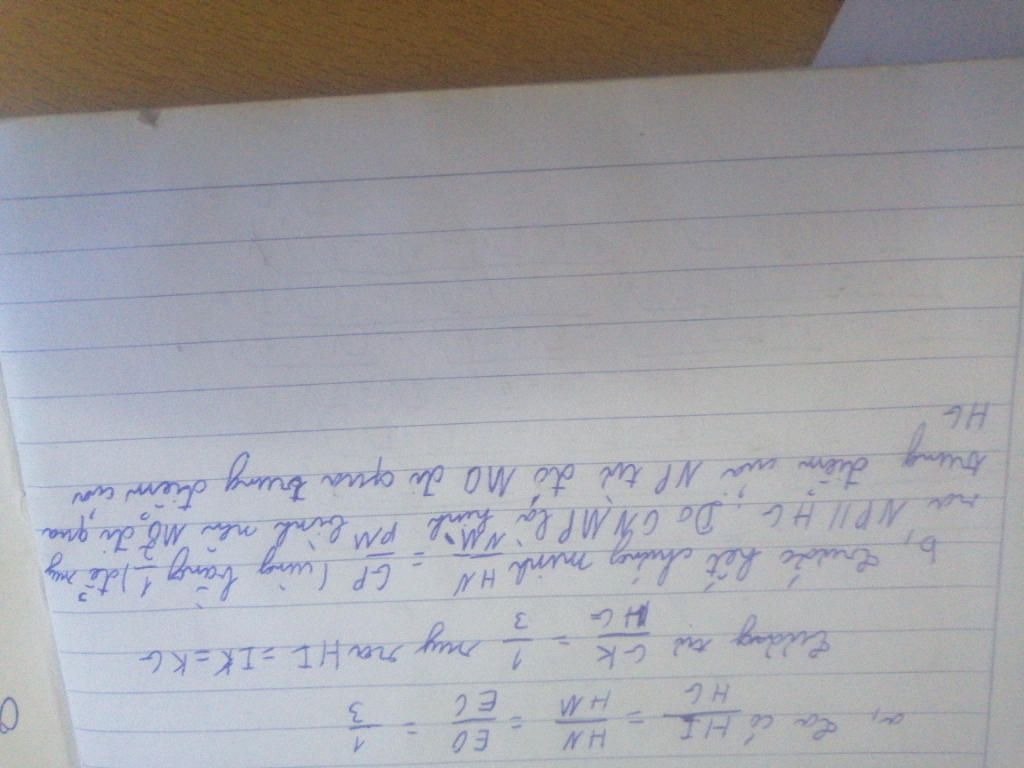 a, Ta có HI/HG = HN/HM = EO/EC = 1/3
Tương tự GK/HG = 1/3 suy ra HI = IK = KG
b, Trước hết chứng minh HN/NM = GP/PM (cùng bằng 1/2) để suy
ra NP // HG. Do ONMP là hình bình nên MO đi qua
trung điểm của NP từ đó MO đi qua trung điểm của
HG